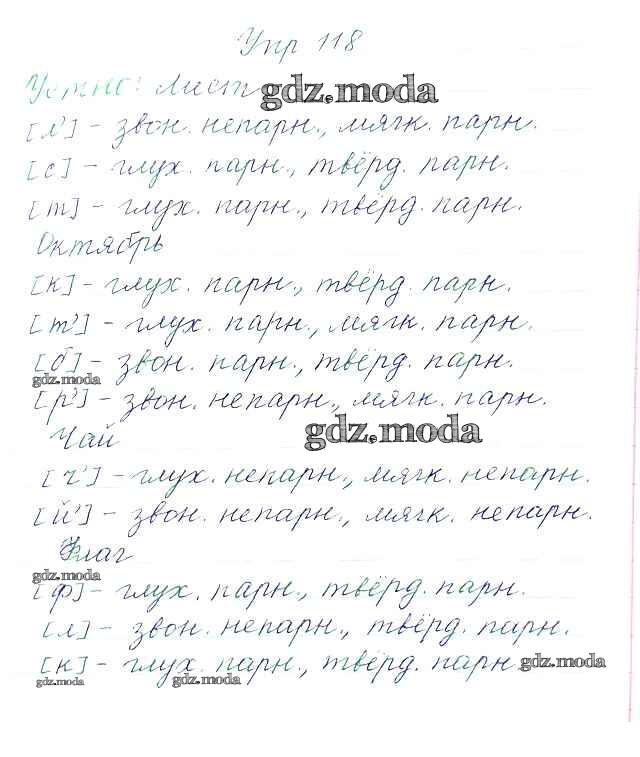 Упр 118
Устно: лист gdz.moda
[л'] - звон. непарн., мягк. парн.
[с] - глух. парн., твёрд. парн.
[т] - глух. парн., твёрд. парн.
Октябрь
[к] - глух. парн., твёрд. парн.
[т'] - глух. парн., мягк. парн.
[б] - звон. парн., твёрд. парн.
gdz.moda
[р'] - звон. непарн., мягк. парн.
Чай gdz.moda
[ч'] - глух. непарн., мягк. непарн.
[й'] - звон. непарн., мягк. непарн.
Флаг
gdz.moda
[ф] - глух. парн., твёрд. парн.
[л] - звон. непарн., твёрд. парн.
[к] - глух. парн., твёрд. парн gdz.moda
gdz.moda gdz.moda